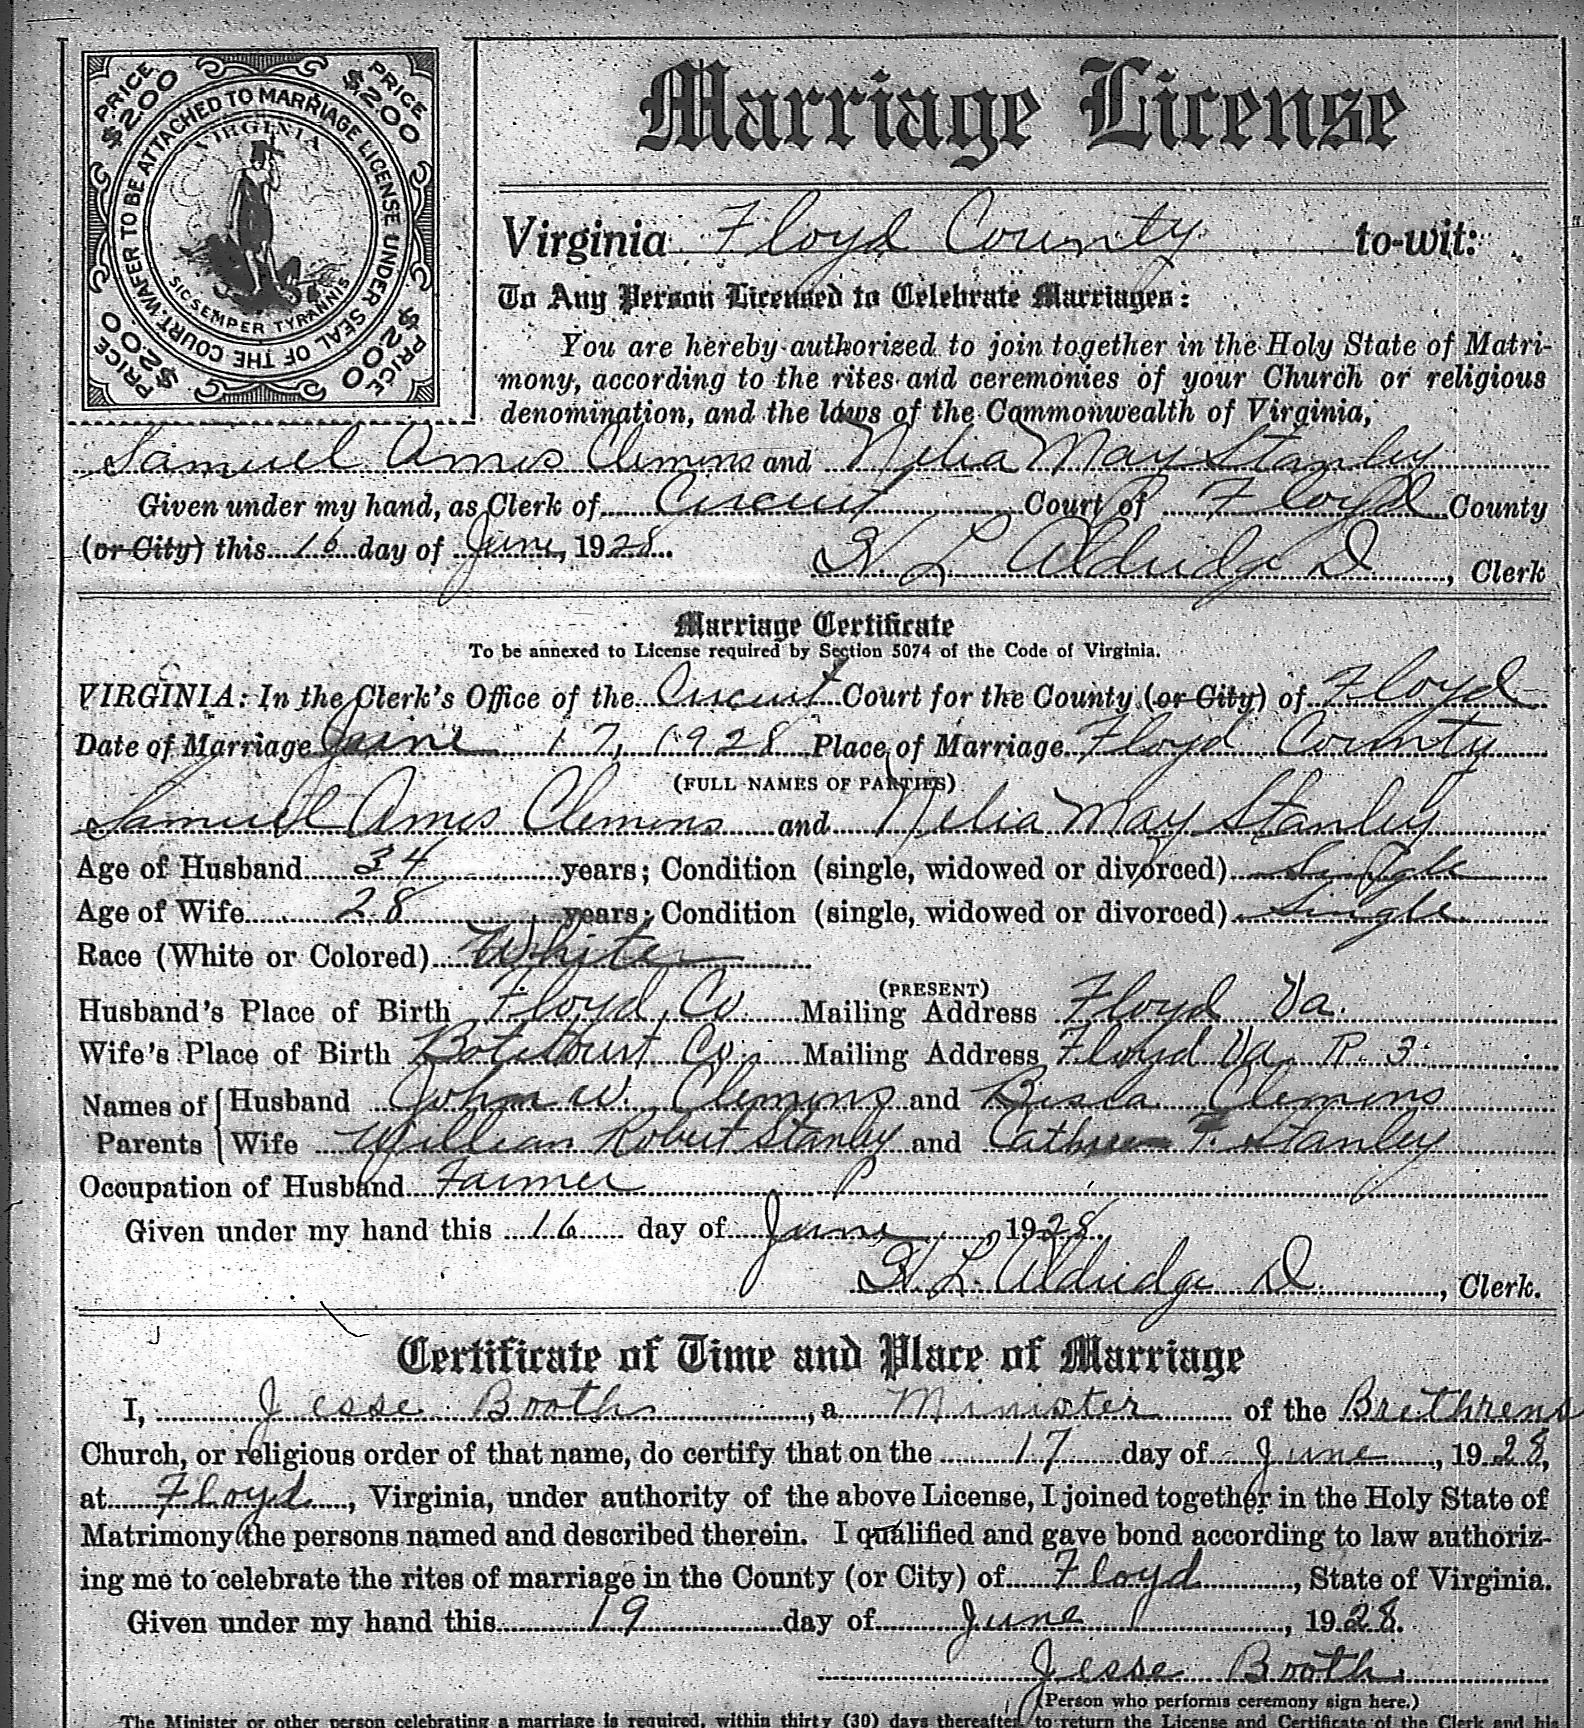 Marriage License
PRICE $2.00
PRICE $2.00
PRICE $2.00
PRICE $2.00
WAFER TO BE ATTACHED TO MARRIAGE LICENSE UNDER SEAL OF THE COURT
VIRGINIA
SIC SEMPER TYRANNIS
Virginia Floyd County to-wit:
To Any Person Licensed to Celebrate Marriages:
You are hereby authorized to join together in the Holy State of Matri-
mony, according to the rites and ceremonies of your Church or religious
denomination, and the laws of the Commonwealth of Virginia,
Samuel Amos Clemens and Nelia May Stanley
Given under my hand, as Clerk of Circuit Court of Floyd County
(or City) this 16 day of June, 1928
H L Aldridge D, Clerk
Marriage Certificate
To be annexed to License required by Section 5074 of the Code of Virginia.
VIRGINIA: In the Clerk's Office of the Circuit Court for the County (or City) of Floyd
Date of Marriage June 17, 1928 Place of Marriage Floyd County
(FULL NAMES OF PARTIES)
Samuel Amos Clemens and Nelia May Stanley
Age of Husband 34 years; Condition (single, widowed or divorced) Single
Age of Wife 28 years; Condition (single, widowed or divorced) Single
Race (White or Colored) White
(PRESENT)
Husband's Place of Birth Floyd Co Mailing Address Floyd Va.
Wife's Place of Birth Botetourt Co. Mailing Address Floyd Va R. 3
Names of Parents Husband John W. Clemens and Clemens
Wife William Robert Stanley and F. Stanley
Occupation of Husband Farmer
Given under my hand this 16 day of June, 1928
H. L. Aldridge D, Clerk.
Certificate of Time and Place of Marriage
I, Jesse Booth, a Minister of the Brethrens
Church, or religious order of that name, do certify that on the 17 day of June, 1928,
at Floyd, Virginia, under authority of the above License, I joined together in the Holy State of
Matrimony the persons named and described therein. I qualified and gave bond according to law authoriz-
ing me to celebrate the rites of marriage in the County (or City) of Floyd, State of Virginia.
Given under my hand this 19 day of June, 1928.
Jesse Booth
(Person who performs ceremony sign here.)
The Minister or other person celebrating a marriage is required, within thirty (30) days thereafter, to return the License and Certificate of the Clerk and his